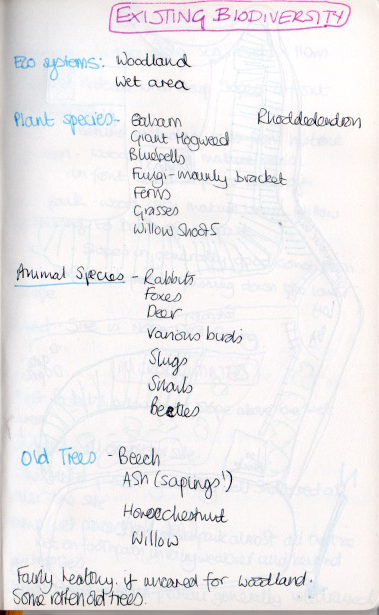 EXISTING BIODIVERSITY
Eco systems: Woodland
Wet area
Plant species - Balsam Rhoddedendron
Giant Hogweed
Bluebells
Fungi - mainly bracket
Ferns
Grasses
Willow Shoots
Animal Species - Rabbits
Foxes
Deer
Various birds
Slugs
Snails
Beetles
Old Trees - Beech
Ash (sapings')
Horsechestnut
Willow
Fairly healthy. if uncared for woodland.
Some rotten old trees.